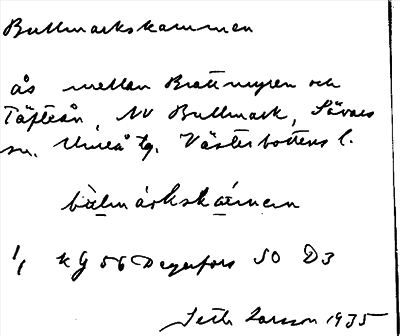 Bullmarkskammen
ås mellan Brattmyren och
Täfteån, NV Bullmark, Sävars
sn. Umeå tg. Västerbottens l.
bùlmárkskámen
1/1 KG 56 Degerfors SO D3
Seth Larsson 1935